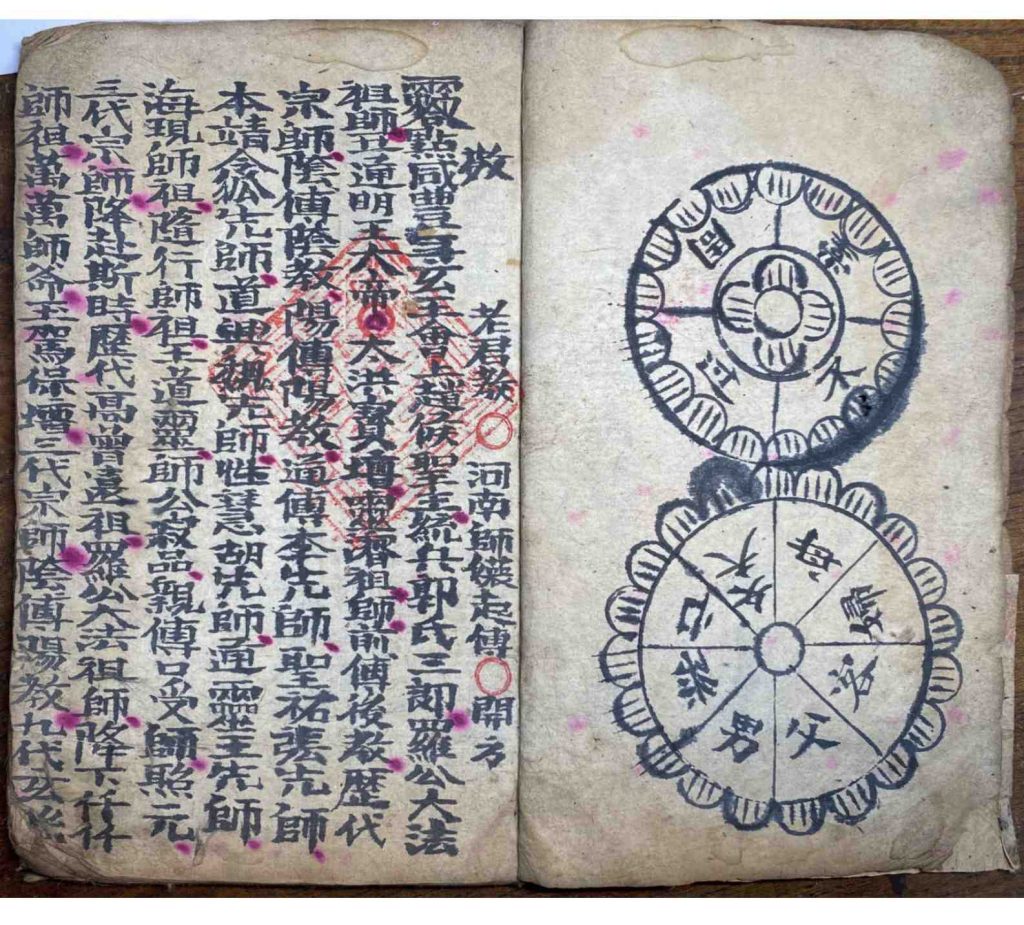 周
堂
不
母
婦
客
父
男
老君教○河南師孃起傳○開方
靈點咸豊玄王會上趙侯聖主統兵郭氏三郎羅公大法
祖師通明王大帝太洪寶壇靈濟祖師前傳後教歷代
宗師陰傳陰教陽傳陽教通傳李先師聖祐張先師
本靖念孤先師道興魏先師性慧胡先師通靈王先師
海現師祖隨行師祖王道靈師公寂品親傳口受師照元
三代宗師降赴斯時歷代高曾遠祖羅公大法祖師降下仟仟
師祖萬萬師爺玉駕保壇三代宗師陰傳陽教九代玄